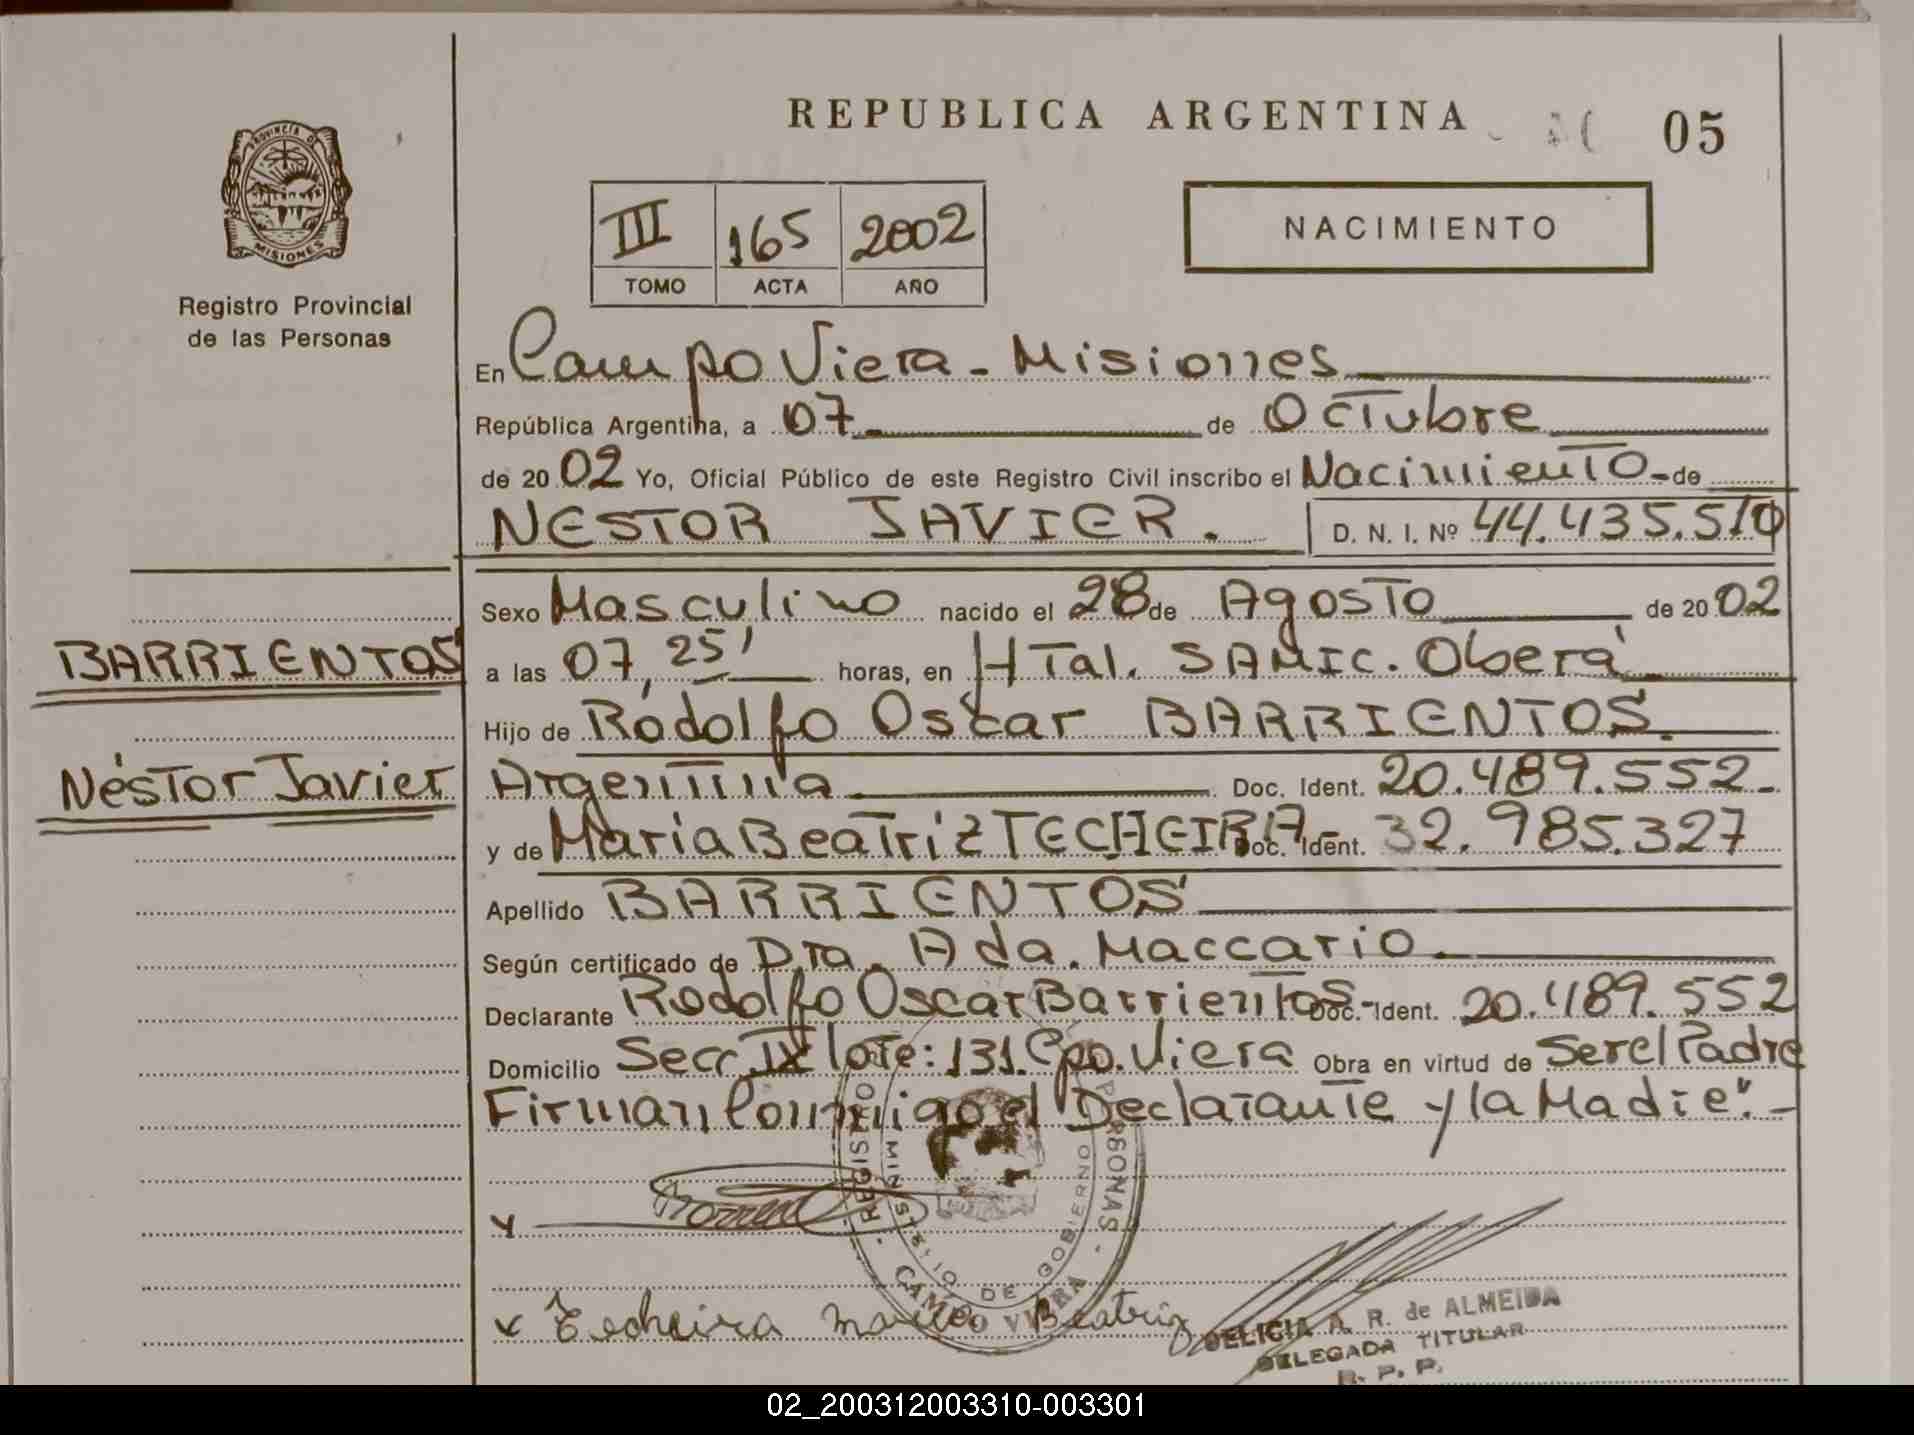 REPUBLICA ARGENTINA
05
PROVINCIA DE
MISIONES
Registro Provincial
de las Personas
III 165 2002
TOMO ACTA AÑO
NACIMIENTO
En Campo Viera - Misiones
República Argentina, a 07 de Octubre
de 20 02 Yo, Oficial Público de este Registro Civil inscribo el Nacimiento - de
NESTOR JAVIER. D. N. I. Nº 44.435.510
Sexo Masculino nacido el 28 de Agosto de 20 02
BARRIENTOS
a las 07,25' horas, en HTal. SAMIC. Oberá
Hijo de Rodolfo Oscar BARRIENTOS.
Néstor Javier
Argentina Doc. Ident. 20.489.552-
y de Maria Beatriz TECHEIRA Doc. Ident. 32.985.327
Apellido BARRIENTOS
Según certificado de Dra. Ada. Maccario.
Declarante Rodolfo Oscar Barrientos- Doc. Ident. 20.489.552
Domicilio Secc. IX lote: 131. Cpo. Viera Obra en virtud de Ser el Padre
Firman Conmigo el Declarante y la Madre".-
REGIS PERSONAS
MINISTERIO DE GOBIERNO
CAMPO VIERA
x Techeira Maria Beatriz
DELICIA A. R. de ALMEIDA
DELEGADA TITULAR
R. P. P.
02_200312003310-003301